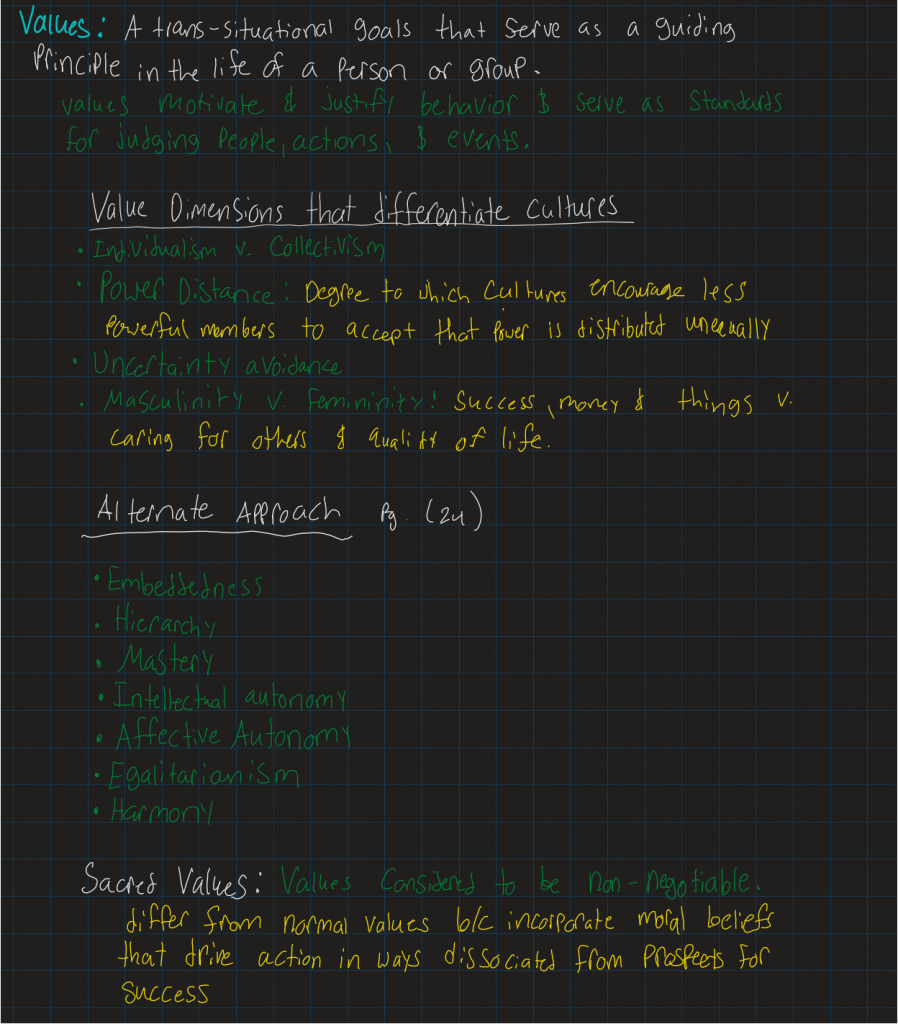 Values: A trans-situational goals that serve as a guiding
Principle in the life of a Person or group.
values motivate & justify behavior & serve as Standards
for judging People, actions, & events.
Value Dimensions that differentiate cultures
• Individualism v. Collectivism
• Power Distance: Degree to which Cultures encourage less
Powerful members to accept that Power is distributed unequally
• Uncertainty avoidance
• Masculinity v. Femininity: Success, money & things v.
caring for others & quality of life.
Alternate Approach Pg. (24)
• Embeddedness
• Hierarchy
• Mastery
• Intellectual autonomy
• Affective Autonomy
• Egalitarianism
• Harmony
Sacred Values: Values Considered to be non-negotiable.
differ from normal values b/c incorporate moral beliefs
that drive action in ways dissociated from Prospects for
Success